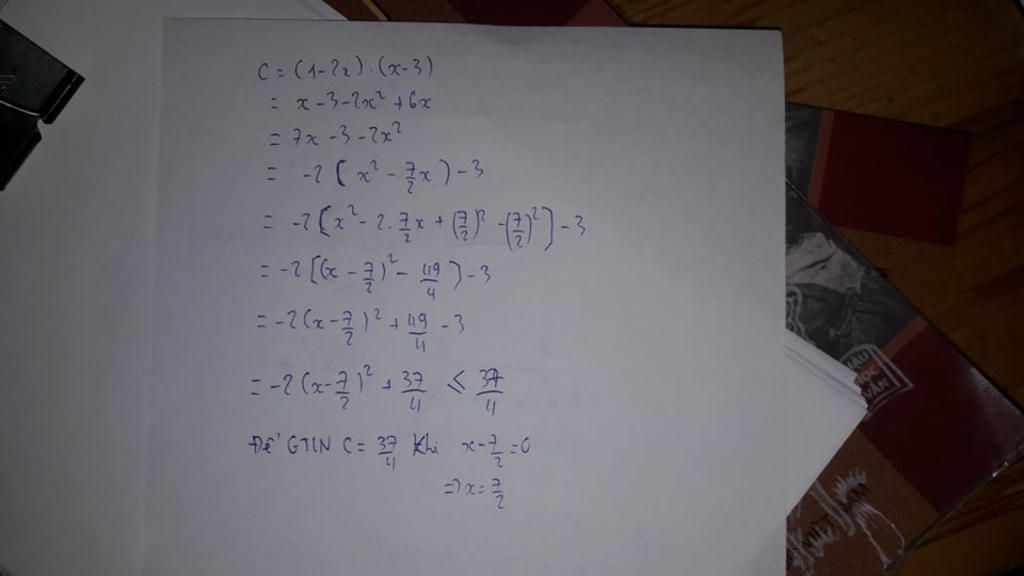 C = (1-2x).(x-3)
= x - 3 - 2x² + 6x
= 7x - 3 - 2x²
= -2 ( x² - 7/2 x ) - 3
= -2 [x² - 2. 7/2 x + (7/2)² - (7/2)²] - 3
= -2 [(x - 7/2)² - 49/4] - 3
= -2 (x - 7/2)² + 49/4 - 3
= -2 (x - 7/2)² + 37/4 ≤ 37/4
Để GTLN C = 37/4 khi x - 7/2 = 0
=> x = 7/2